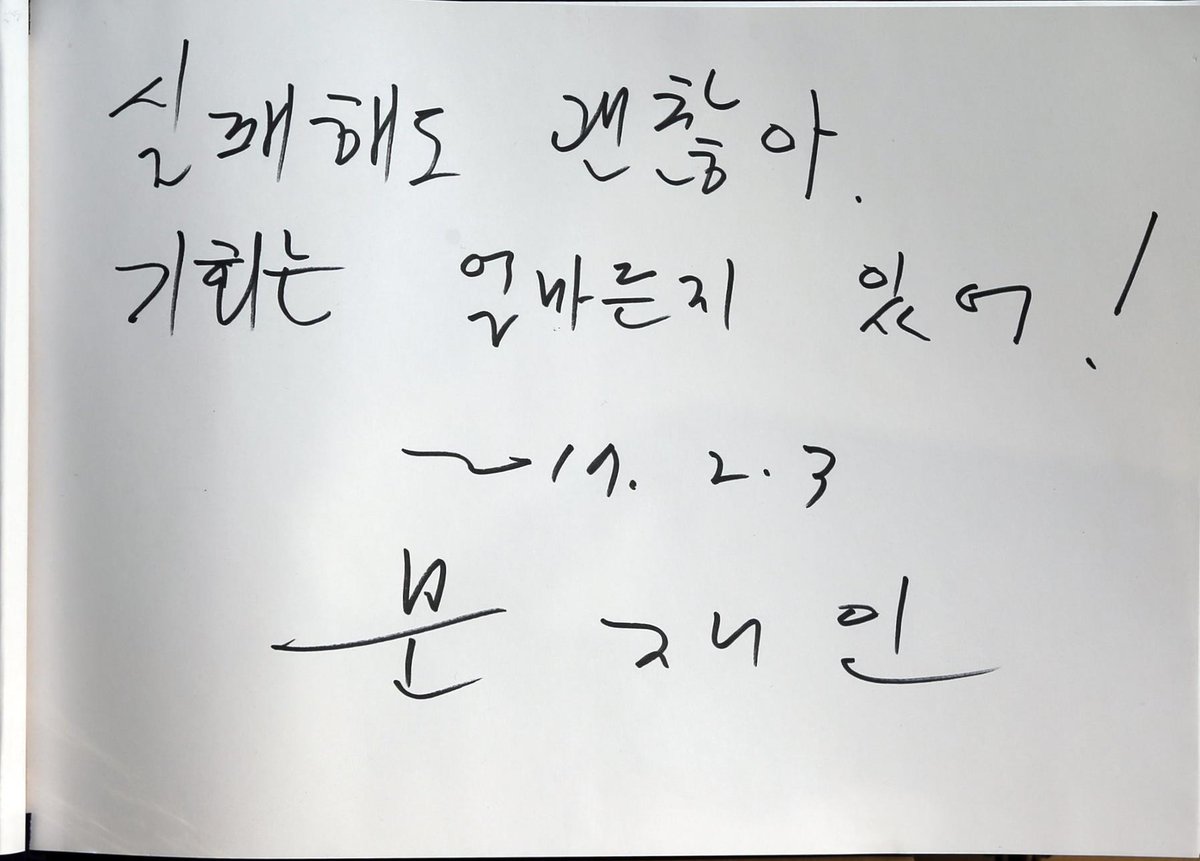 실패해도 괜찮아.
기회는 얼마든지 있어!
2017. 2. 3
문재인